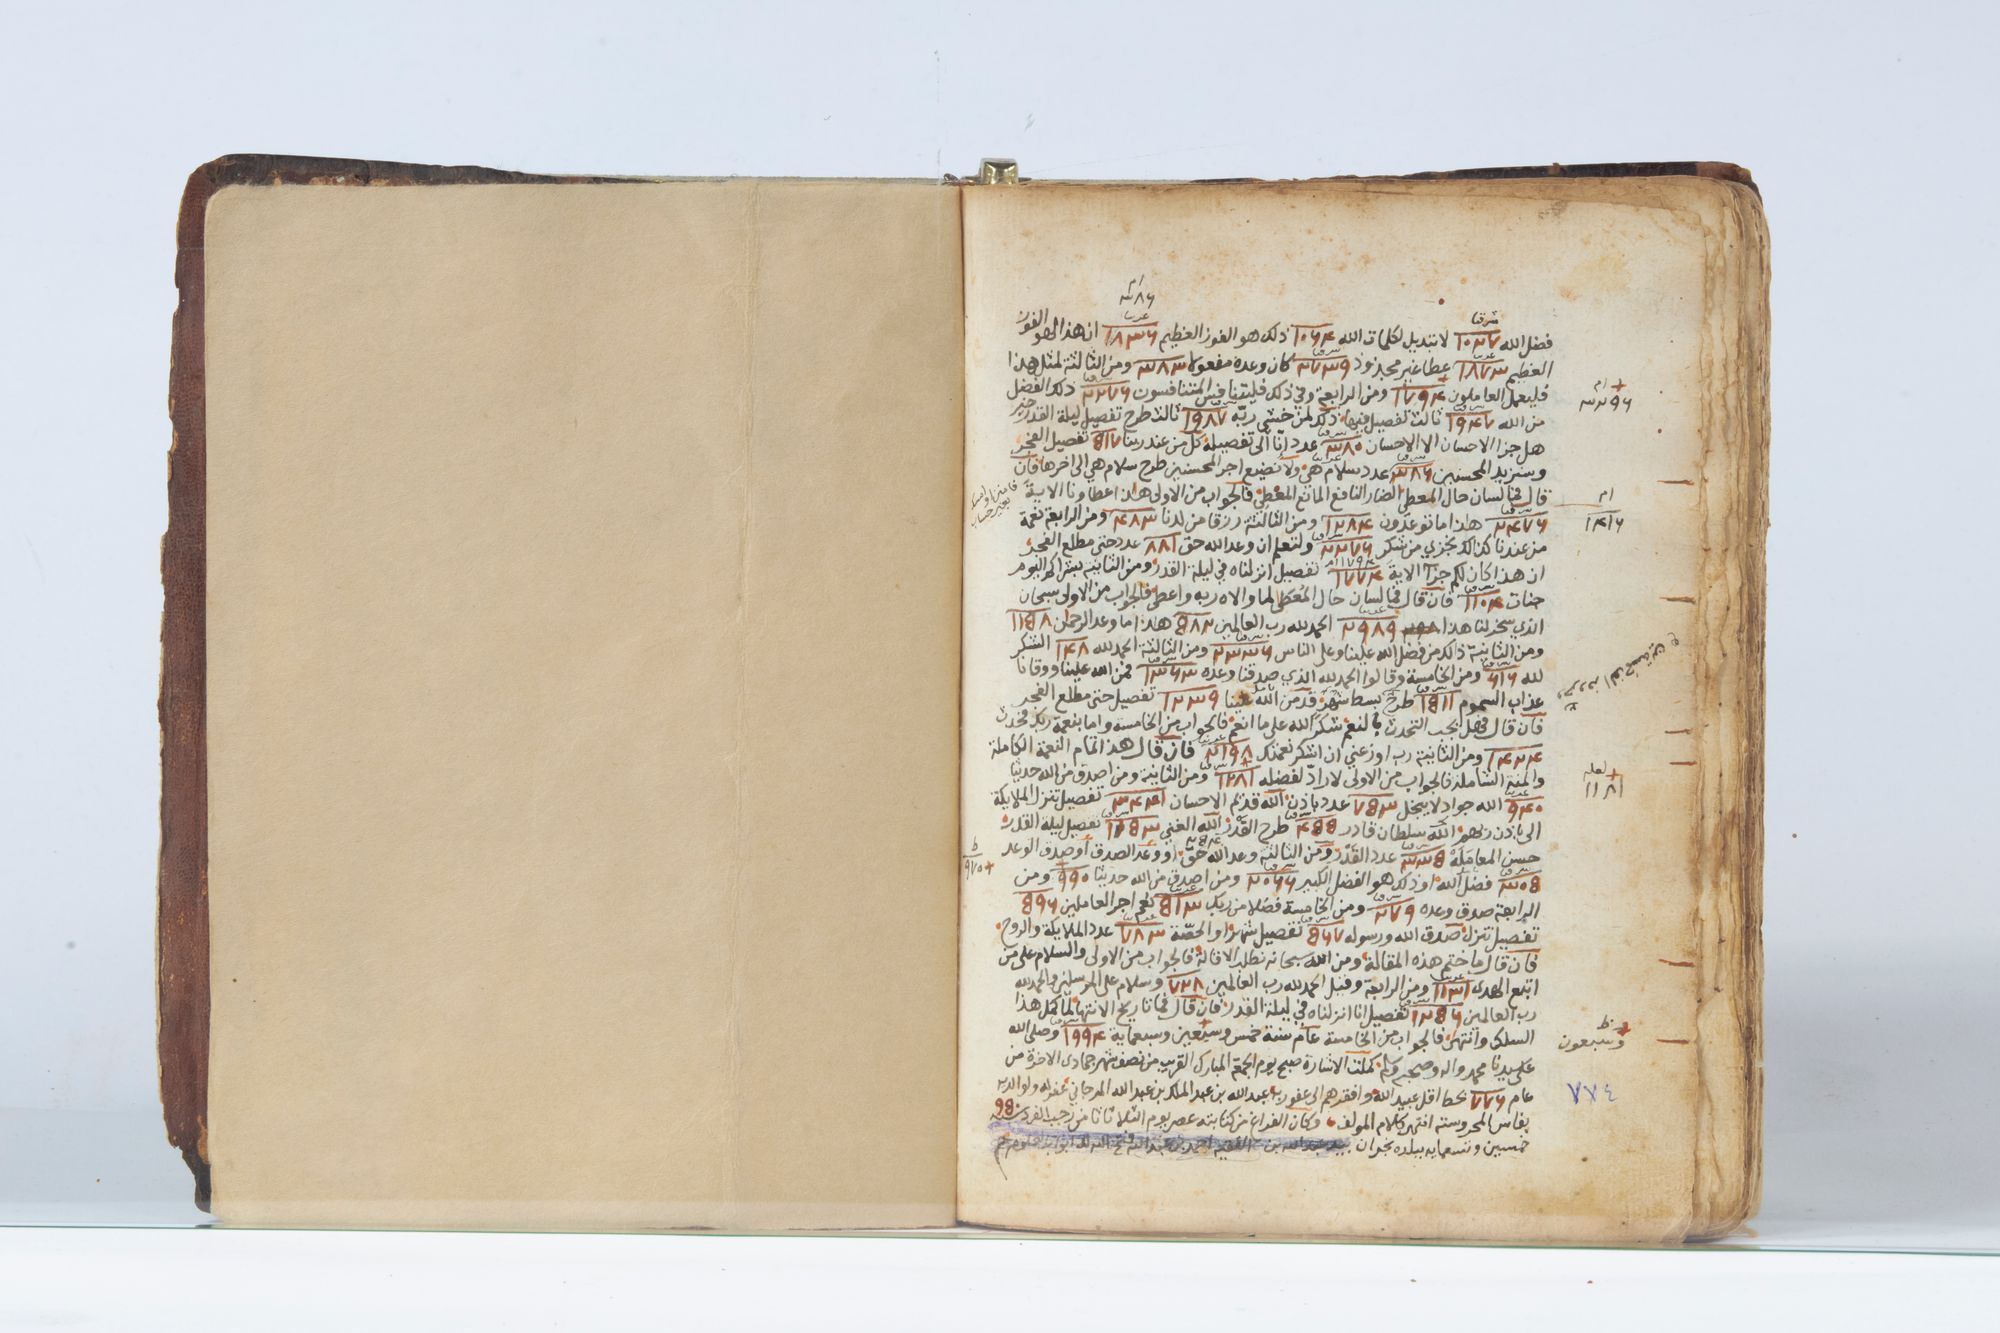 فضل الله ١٠٢٧ لا تبديل لكلمات الله ١٠٦٤ ذلك هو الفوز العظيم ١٨٣٦ ان هذا لهو الفوز
العظيم ١٨٧٣ عطا غير مجذوذ ٢٧٣٩ كان وعده مفعولا ٣٨٣ ومن الثالثة لمثل هذا
فليعمل العاملون ١٧٩٤ ومن الرابعة وفي ذلك فليتنافس المتنافسون ٢٢٧٦ ذلك الفضل
من الله ١٩٤٧ ثالث تفصيل فيها ذلك لمن خشي ربه ١٩٨٧ ثالث طرح تفصيل ليلة القدر خير
هل جزا الاحسان الا الاحسان ٣٨٠ عدد انا الى تفصيله كل من عند ربنا ٨١٧ تفصيل الفجر
وسنزيد المحسنين ٣٨٦ عدد سلام هي ولا نضيع اجر المحسنين طرح سلام هي الى اخرها فان
قال فما لسان حال المعطي الضار النافع المانع المعطي فالجواب من الاولى هذا عطاونا الاية
٢٤٧٦ هذا ما توعدون ١٢٨٤ ومن الثالثة رزقا من لدنا ٤٨٣ ومن الرابعة نعمة
من عندنا كذلك نجزي من شكر ٢٢٧٦ ولتعلم ان وعد الله حق ٨٨١ عدد حتى مطلع الفجر
ان هذا كان لكم جزآ الاية ١٧٧٤ تفصيل انزلناه في ليلة القدر ومن الثانية بشراكم اليوم
جنات ١١٥٤ فان قال فما لسان حال المعطى لما والاه ربه واعطى فالجواب من الاولى سبحان
الذي سخر لنا هذا ٢٩٨٩ الحمد لله رب العالمين هذا ما وعد الرحمن
ومن الثانية ذلك من فضل الله علينا وعلى الناس ٢٣٣٦ ومن الثالثة الحمد لله ١٤٨ الشكر
لله ٦١٦ ومن الخامسة وقالوا الحمد لله الذي صدقنا وعده ١٣٦٣ فمن الله علينا ووقانا
عذاب السموم طرح بسط شهر قد من الله علينا ١٢٣٩ تفصيل حتى مطلع الفجر
فان قال فهل يجب التحدث بالنعم شكر الله على ما انعم فالجواب من الخامسة واما بنعمة ربك فحدث
١٤٢٤ ومن الثانية رب اوزعني ان اشكر نعمتك ٢١٩٨ فان قال هذا تمام النعمة الكاملة
والمنة الشاملة فالجواب من الاولى لا راد لفضله ١٢٨١ ومن الثانية ومن اصدق من الله حديثا
٩٤٠ الله جواد لا يبخل عدد باذن الله قديم الاحسان تفصيل تنزل الملايكة
الى باذن ربهم الله سلطان قادر طرح القدر الله الغني تفصيل ليلة القدر
حسن المعاملة عدد القدر ومن الثالثة وعد الله حق او وعد الصدق او صدق الوعد
فضل الله او ذلك هو الفضل الكبير ٢٠٦٦ ومن اصدق من الله حديثا ٩٩٠ ومن
الرابعة صدق وعده ٢٧٩ ومن الخامسة فضلا من ربك نعم اجر العاملين
تفصيل تنزل صدق الله ورسوله تفصيل شهر او الحصة ٧٨٣ عدد الملايكة والروح
فان قال ما ختم هذه المقالة ومن الله سبحانه نطلب الاقالة فالجواب من الاولى والسلام على من
اتبع الهدى ١١٣١ ومن الرابعة وقيل الحمد لله رب العالمين ٧٢٨ وسلام على المرسلين والحمد لله
رب العالمين تفصيل انا انزلناه في ليلة القدر فان قال فما تاريخ الانتها لما كمل هذا
السلك وانتهى فالجواب من الخامسة عام سنة خمس وسبعين وسبعماية ١٩٩٤ وصلى الله
على سيدنا محمد واله وصحبه وسلم كملت الاشارة صبح يوم الجمعة المبارك القريب من نصف شهر جمادى الاخرة من
عام ٧٧٦ بخط اقل عبيد الله وافقرهم الى عفو ربه عبد الله بن عبد الملك بن عبد الله المرجاني غفر له ولوالديه
بفاس المحروسة انتهى كلام المولف وكان الفراغ من كتابته عصر يوم الثلاثا من رجب الفرد سنة
خمسين وتسعمايه ببلده نجران
ام
٣٨٦
ام
٣٢٩٦
ام
١٤١٦
لعله
١١٨١
ظ
٩٧٠
ظ
وسبعون
٧٧٤